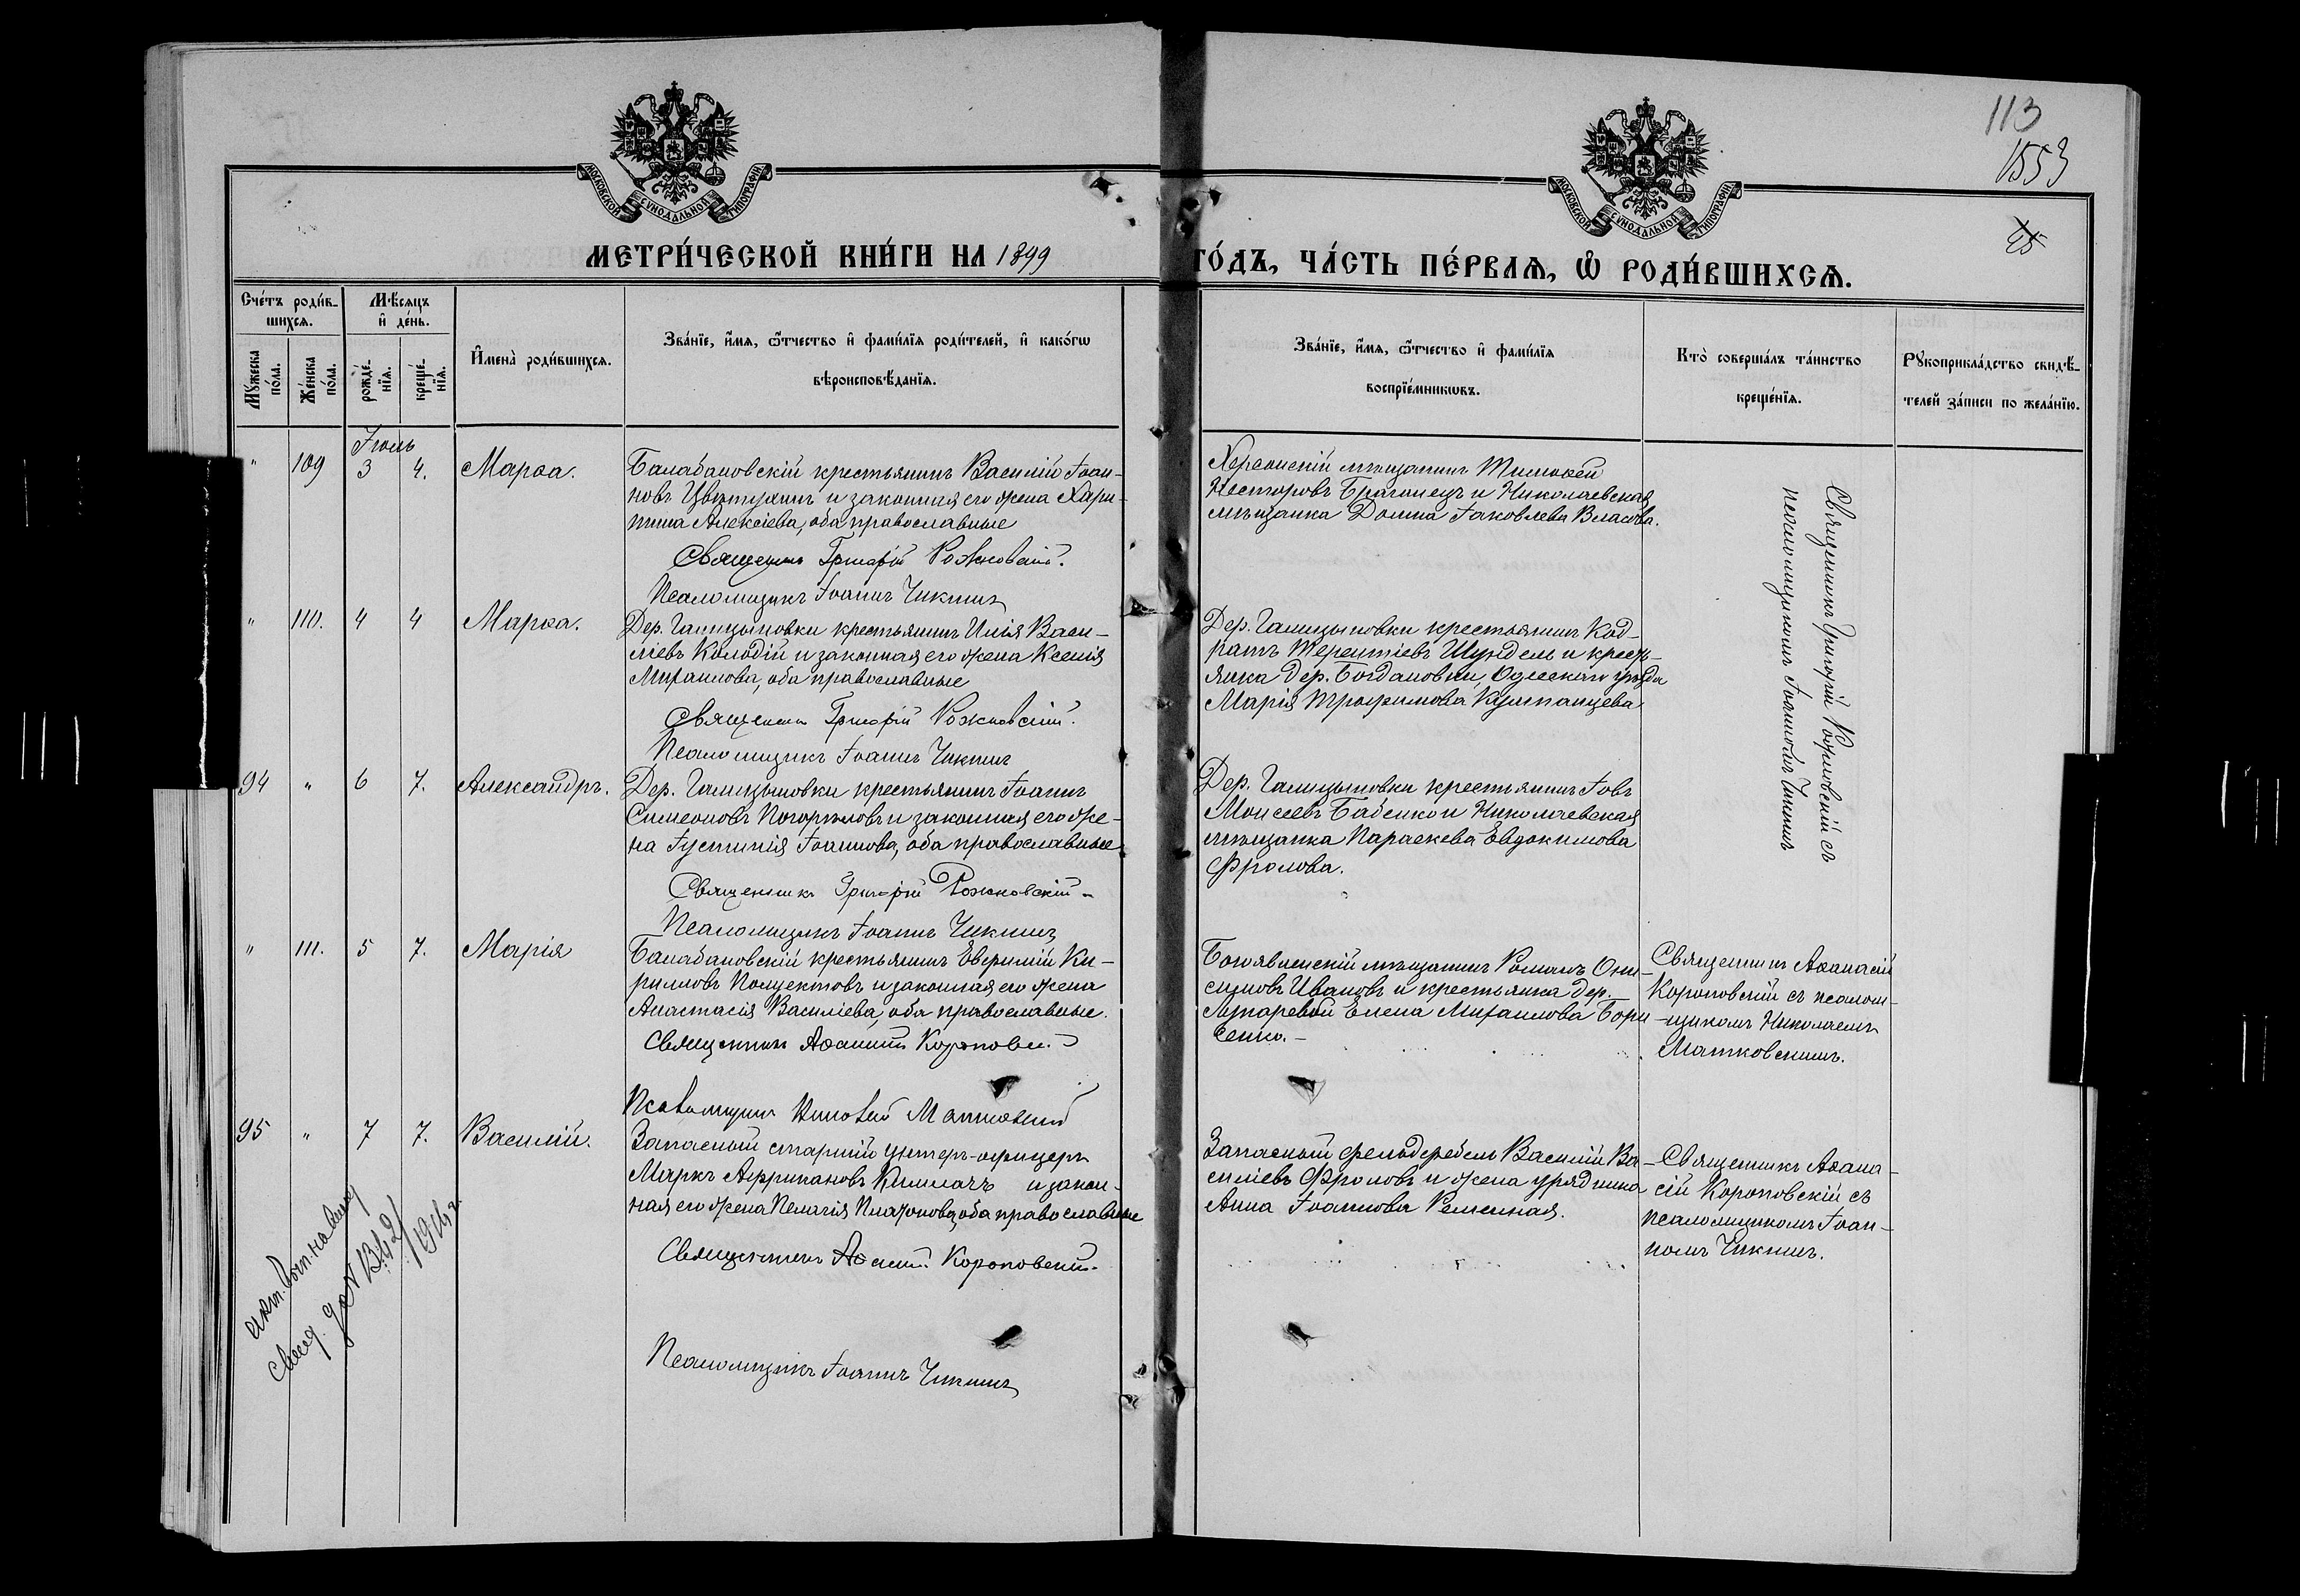 113
1553
25
МОСКОВСКОЙ СѴНОДАЛЬНОЙ ТИПОГРАФІИ
МОСКОВСКОЙ СѴНОДАЛЬНОЙ ТИПОГРАФІИ
МЕТРИ́ЧЕСКОЙ КНИ́ГИ НА 1899
ГО́ДЪ, ЧА́СТЬ ПЕ́РВАѦ, Ѡ҆ РОДИ́ВШИХСѦ.
Сче́тъ роди́в-
шихсѧ.
Мѣ́сѧцъ
и҆ де́нь.
Мꙋ́жеска
по́ла.
Же́нска
по́ла.
рожде́-
нїѧ.
креще́-
нїѧ.
И҆мена̀ роди́вшихсѧ.
Зва́нїе, и҆́мѧ, ѻ҆́тчество и҆ фами́лїѧ роди́телей, и҆ како́гѡ
вѣроисповѣ́данїѧ.
Зва́нїе, и҆́мѧ, ѻ҆́тчество и҆ фами́лїѧ
воспрїе́мникѡвъ.
Кто̀ соверша́лъ та́инство
креще́нїѧ.
Рꙋкоприкла́дство свидѣ́-
телей за́писи по жела́нїю.
Іюль
" 109 3 4. Марѳа.
Балабановскій крестьянинъ Василій Іоан-
новъ Цвѣтухинъ и законная его жена Хари-
тина Алексіева, оба православные
Священникъ Григорій Рожковскій.
Псаломщикъ Іоаннъ Чикминъ
Херсонскій мѣщанинъ Тимоѳей
Несторовъ Брагонецъ и Николаевская
мѣщанка Домна Іаковлева Власова.
Священникъ Григорій Рожковскій съ
псаломщикомъ Іоанномъ Чикминъ
" 110. 4 4 Марѳа.
Дер. Галицыновки крестьянинъ Илія Васи-
ліевъ Колодій и законная его жена Ксенія
Михаилова, оба православные
Священникъ Григорій Рожковскій.
Псаломщикъ Іоаннъ Чикминъ
Дер. Галицыновки крестьянинъ Код-
ратъ Терентіевъ Шундель и кресть-
янка дер. Богдановки, Одесскаго уѣзда
Марія Трофимова
94 " 6 7. Александръ.
Дер. Галицыновки крестьянинъ Іоаннъ
Симеоновъ Погорѣловъ и законная его же-
на Іустинія Іоаннова, оба православные
Священникъ Григорій Рожковскій
Псаломщикъ Іоаннъ Чикминъ
Дер. Галицыновки крестьянинъ Іовъ
Моисеевъ Бабенко и Николаевская
мѣщанка Параскева Евдокимова
Фролова.
" 111. 5 7. Марія
Балабановскій крестьянинъ Евфимій Ки-
рилловъ Полуектовъ и законная его жена
Анастасія Василіева, оба православные.
Священникъ Аѳанасій Короповскій
Псаломщикъ Николай Матковскій
Богоявленскій мѣщанинъ Романъ Они-
симовъ Ивановъ и крестьянка дер.
Лупаревой Елена Михаилова Бори-
сенко.-
Священникъ Аѳанасій
Короповскій съ псалом-
-щикомъ Николаемъ
Матковскимъ.
95 " 7 7. Василій.
Запасный старшій унтеръ-офицеръ
Маркъ Африкановъ и закон-
ная его жена Пелагія Платонова, оба православные
Священникъ Аѳанасій Короповскій
Псаломщикъ Іоаннъ Чикминъ
Запасный фельдфебель Василій Ва-
силіевъ Фроловъ и жена урядника
Анна Іоаннова
Священникъ Аѳана-
сій Короповскій съ
псаломщикомъ Іоан-
номъ Чикминъ.